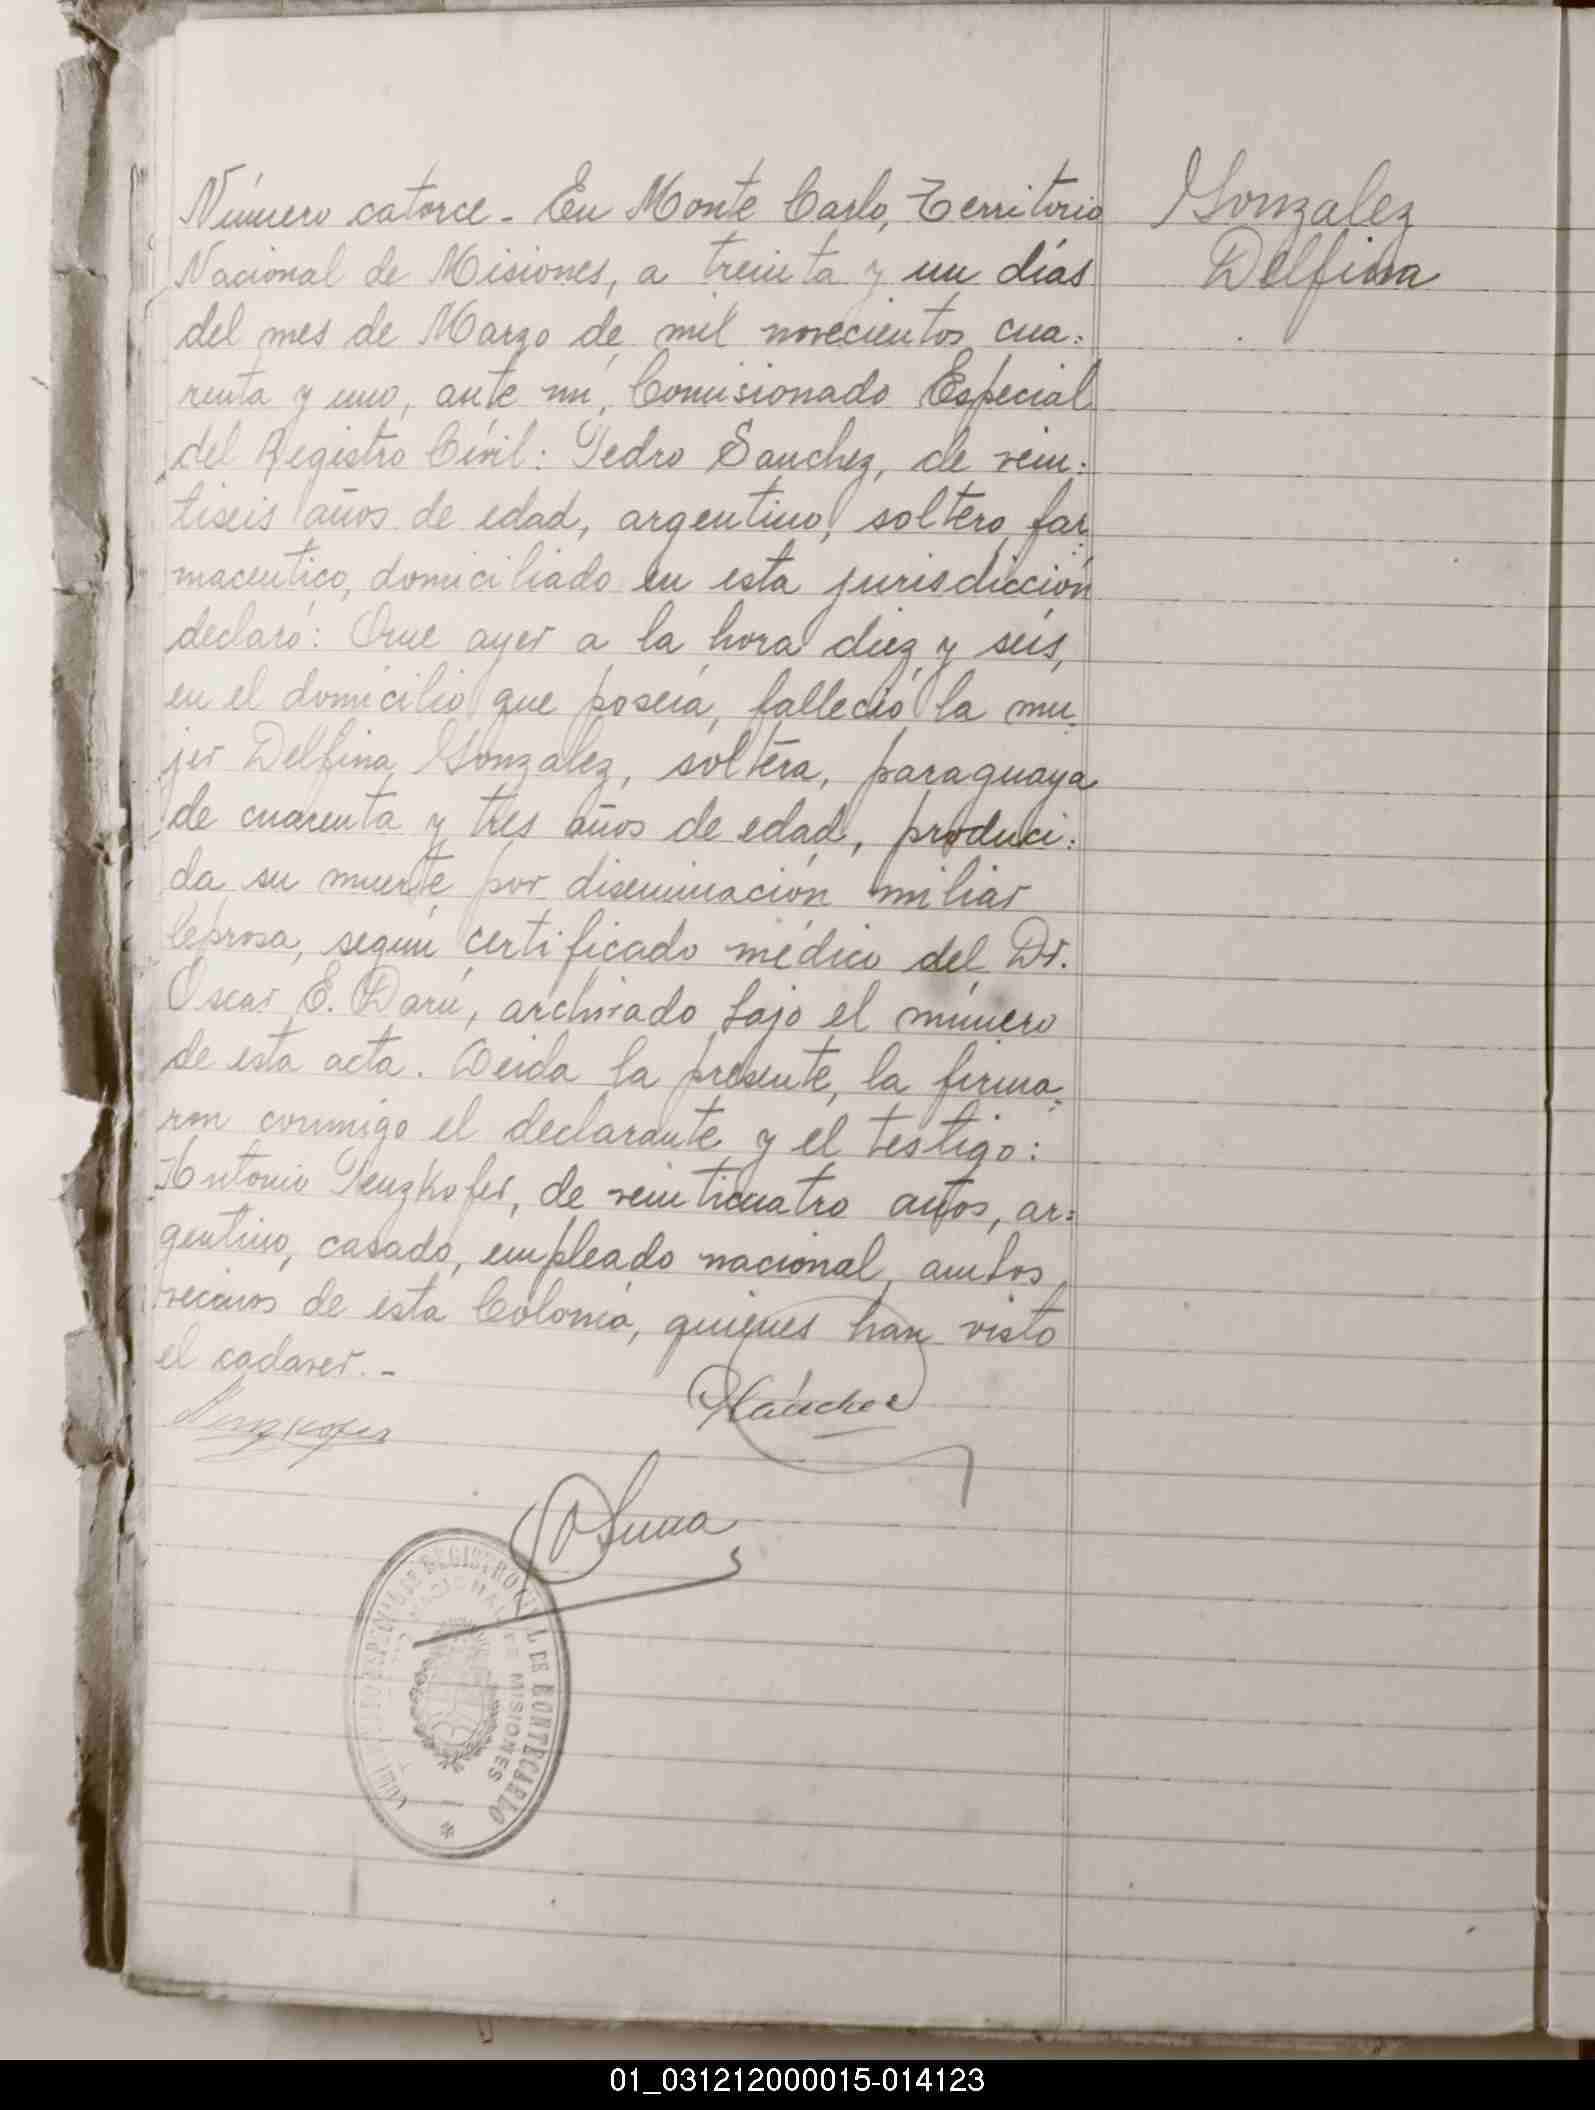 Gonzalez
Delfina
Número catorce - En Monte Carlo, Territorio
Nacional de Misiones, a treinta y un días
del mes de Marzo de mil novecientos cua=
renta y uno, ante mi, Comisionado Especial
del Registro Civil: Pedro Sanchez, de vein=
tiseis años de edad, argentino, soltero, far=
maceutico, domiciliado en esta jurisdicción
declaró: Que ayer a la hora diez y seis,
en el domicilio que poseía, falleció la mu=
jer Delfina Gonzalez, soltera, paraguaya
de cuarenta y tres años de edad, produci=
da su muerte por diseminación miliar
leprosa, según certificado médico del Dr.
Oscar E. Darú, archivado bajo el número
de esta acta. Leida la presente, la firma=
ron conmigo el declarante y el testigo:
Antonio Penzkofer, de veinticuatro años, ar=
gentino, casado, empleado nacional, ambos
vecinos de esta Colonia, quienes han visto
el cadaver. -
Penzkofer
PSánchez
Luna
REGISTRO CIVIL DE MONTECARLO
NACIONAL DE MISIONES
01_031212000015-014123